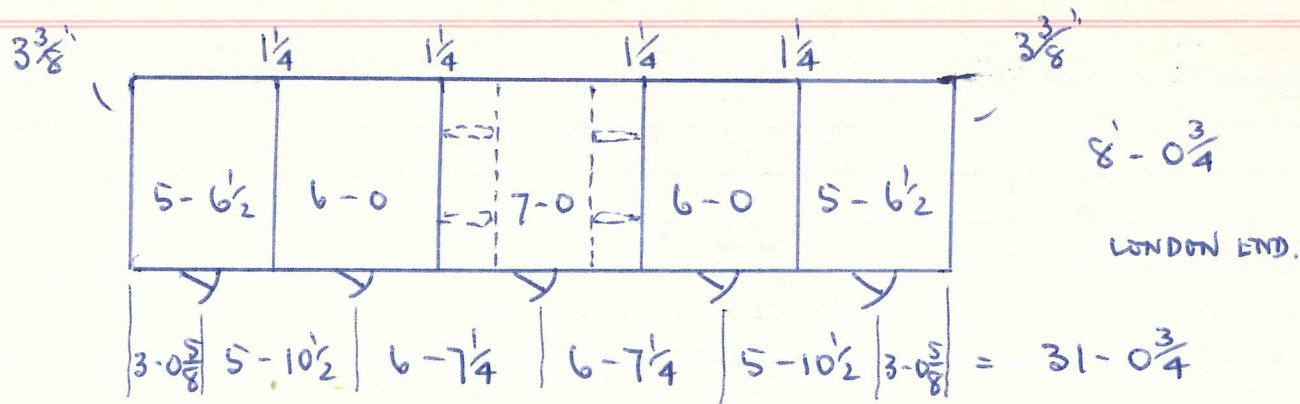 3 3/8" 1 1/4 1 1/4 1 1/4 1 1/4 3 3/8"
8' - 0 3/4
5 - 6 1/2 6 - 0 7 - 0 6 - 0 5 - 6 1/2
LONDON END.
3 - 0 5/8 5 - 10 1/2 6 - 7 1/4 6 - 7 1/4 5 - 10 1/2 3 - 0 5/8 = 31 - 0 3/4